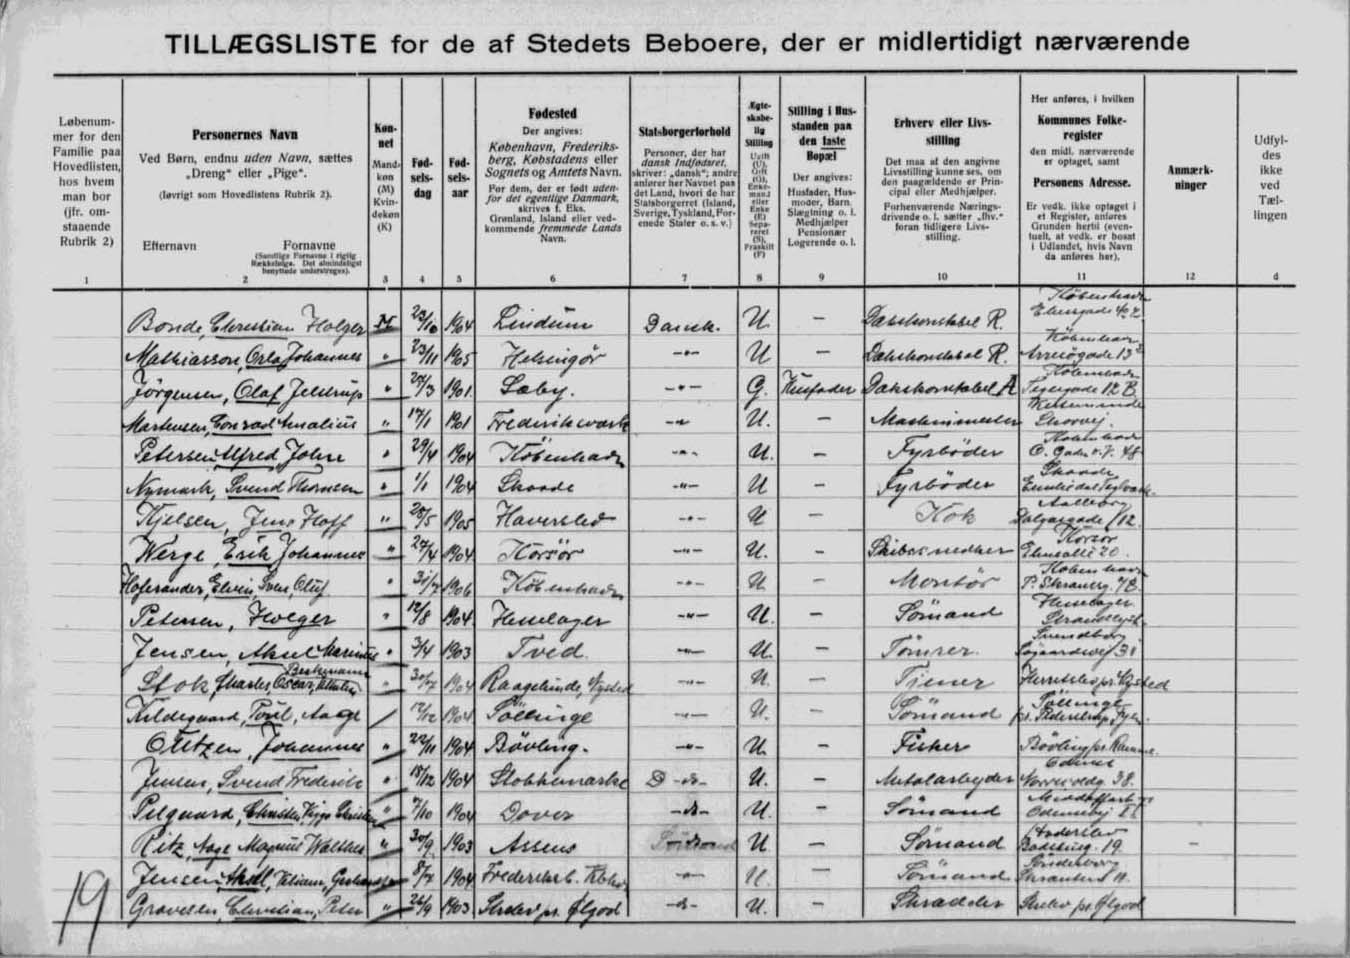 TILLÆGSLISTE for de af Stedets Beboere, der er midlertidigt nærværende
Løbenummer for den Familie paa Hovedlisten, hos hvem man bor (jfr. omstaaende Rubrik 2)
Personernes Navn
Ved Børn, endnu uden Navn, sættes „Dreng“ eller „Pige“.
(Iøvrigt som Hovedlistens Rubrik 2).
Efternavn Fornavne
(Samtlige Fornavne i rigtig Rækkefølge. Det almindeligst benyttede understreges).
Kønnet
Mandkøn (M) Kvindekøn (K)
Fødselsdag
Fødselsaar
Fødested
Der angives:
København, Frederiksberg, Købstadens eller Sognets og Amtets Navn.
For dem, der er født udenfor det egentlige Danmark, skrives f. Eks. Grønland, Island eller vedkommende fremmede Lands Navn.
Statsborgerforhold
Personer, der har dansk Indfødsret, skriver: „dansk“; andre anfører her Navnet paa det Land, hvori de har Statsborgerret (Island, Sverige, Tyskland, Forenede Stater o. s. v.)
Ægteskabelig Stilling
Ugift (U), Gift (G), Enkemand eller Enke (E) Separeret (S), Fraskilt (F)
Stilling i Husstanden paa den faste Bopæl
Der angives:
Husfader, Husmoder, Barn. Slægtning o. l. Medhjælper Pensionær Logerende o. l.
Erhverv eller Livsstilling
Det maa af den angivne Livsstilling kunne ses, om den paagældende er Principal eller Medhjælper.
Forhenværende Næringsdrivende o. l. sætter „fhv.“ foran tidligere Livsstilling.
Her anføres, i hvilken
Kommunes Folkeregister
den midl. nærværende er optaget, samt
Personens Adresse.
Er vedk. ikke optaget i et Register, anføres Grunden hertil (eventuelt, at vedk. er bosat i Udlandet, hvis Navn da anføres her).
Anmærkninger
Udfyldes ikke ved Tællingen
1 2 3 4 5 6 7 8 9 10 11 12 d
Bonde, Christian Holger M 23/10 1904 Lindum Dansk. U. – Dækskonstabel R. København
Mathiasson, Orla Johannes " 23/11 1905 Helsingør -"- U – Dækskonstabel R. København
Jörgensen, Olaf Jelstrup " 1901. Sæby. -"- G. Husfader Dækskonstabel A København 12 B
Martensen, Conrad Amalius " 17/1 1901 Frederiksværk -"- U. – Maskinmester Kerteminde
Petersen Alfred John " 29/4 1904 København -"- U. – Fyrbøder København
Nymark, Svend Thomsen " 1/1 1904 Skaade -"- U – Fyrbøder Skaade
Kjelsen, Jens Hoff " 1905 Haverslev -"- U – Kok Aalborg
Werge, Erik Johannes " 1904 Korsør -"- U. – Skibssnedker Korsør 20.
Elvin, Sven, Oluf " 1906 København -"- U – Montör København
Petersen, Holger " 12/8 1904. Hesselager -"- U. – Sömand Hesselager
Jensen, Aksel Marinus " 3/4 1903 Tved. -"- U. – Tömrer. Svendborg 31
Stok, Charles, Oscar, " 1904 Nysted -"- U. – Tjener Nysted
Kildegaard, Poul, Aage 1904 Söllinge -"- U. – Sömand Söllinge
Johannes " 22/11 1904 Bövling. -"- U. – Fisker Bövling pr. Ramme.
Jensen, Svend Frederik " 18/12 1904 Stokkemarke D -"- U. – Metalarbejder Odense 38.
Pilgaard, Christen, Viggo " 1904 Dover -"- U. – Sömand
Ritz, Aage Magnus Walther " 30/9 1903 Assens U – Sömand Haderslev 19 –
Jensen Aksel, 8/4 1904 -"- U. – Sömand Sönderborg
Gravesen, Christian, Peter " 1903 pr. Ølgod -"- U. – Skrædder pr. Ølgod
19